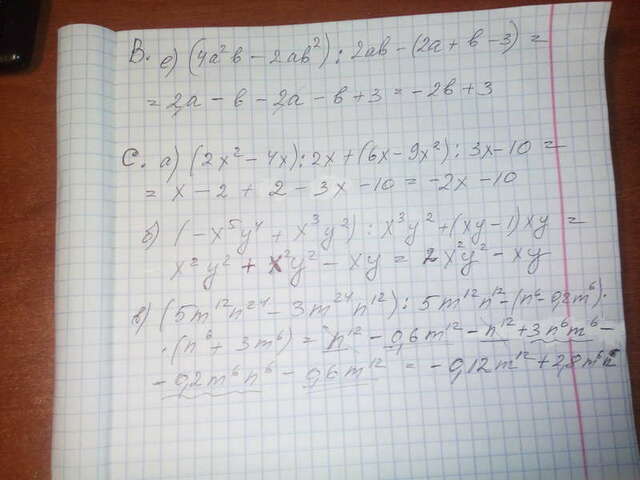 В. е) (4a²b - 2ab²) : 2ab - (2a + b - 3) =
= 2a - b - 2a - b + 3 = -2b + 3
С. а) (2x² - 4x) : 2x + (6x - 9x²) : 3x - 10 =
= x - 2 + 2 - 3x - 10 = -2x - 10
б) (-x⁵y⁴ + x³y²) : x³y² + (xy - 1)xy =
x²y² + x²y² - xy = 2x²y² - xy
в) (5m¹²n²⁴ - 3m²⁴n¹²) : 5m¹²n¹² - (n⁶ - 0,2m⁶) ·
· (n⁶ + 3m⁶) = n¹² - 0,6m¹² - n¹² + 3n⁶m⁶ -
- 0,2m⁶n⁶ - 0,6m¹² =